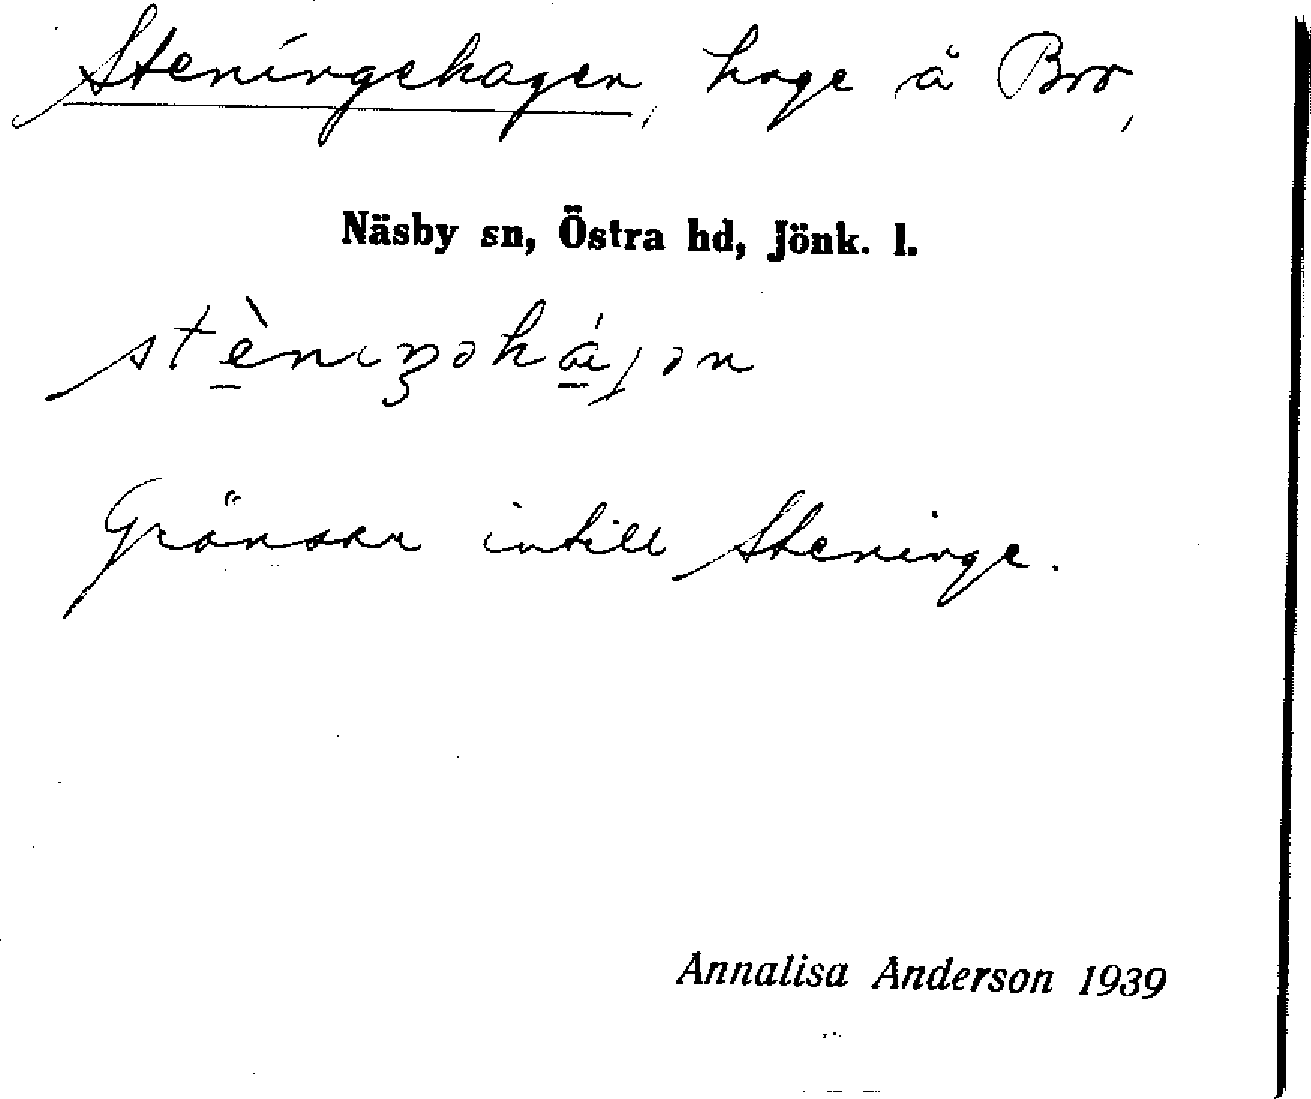 Steningehagen, hage å Bro,
Näsby sn, Östra hd, Jönk. l.
Gränsar intill Steninge.
Annalisa Anderson 1939